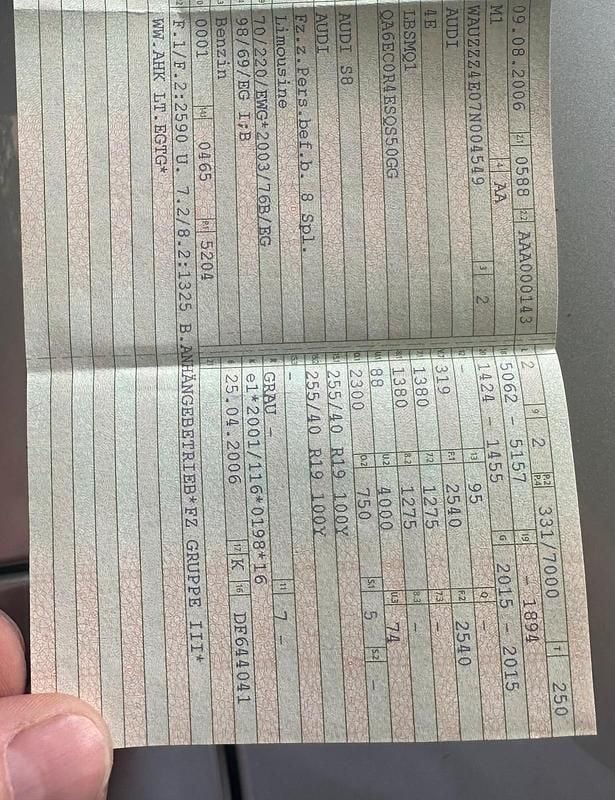 09.08.2006 2.1 0588 2.2 AAA000143
M1 AA
WAUZZZ4E07N004549 3 2
AUDI
4E
LBSMQ1
QA6ECOR4ESQS50GG
AUDI S8
AUDI
Fz.z.Pers.bef.b. 8 Spl.
Limousine
70/220/EWG*2003/76B/EG
98/69/EG I;B
Benzin
0001 0465 P.1 5204
F.1/F.2:2590 U. 7.2/8.2:1325 B.ANHÄNGEBETRIEB*FZ GRUPPE III*
WW.AHK LT.EGTG*
L 2 9 2 P.2 P.4 331/7000 T 250
5062 - 5157 19 - 1894
1424 - 1455 G 2015 - 2015
- 13 95 Q -
319 F.1 2540 F.2 2540
1380 7.2 1275 7.3 -
1380 8.2 1275 8.3 -
88 U.2 4000 U.3 74
2300 O.2 750 S.1 5 S.2 -
255/40 R19 100Y
255/40 R19 100Y
-
R GRAU - 11 7 -
K e1*2001/116*0198*16
6 25.04.2006 17 K 16 DF644041